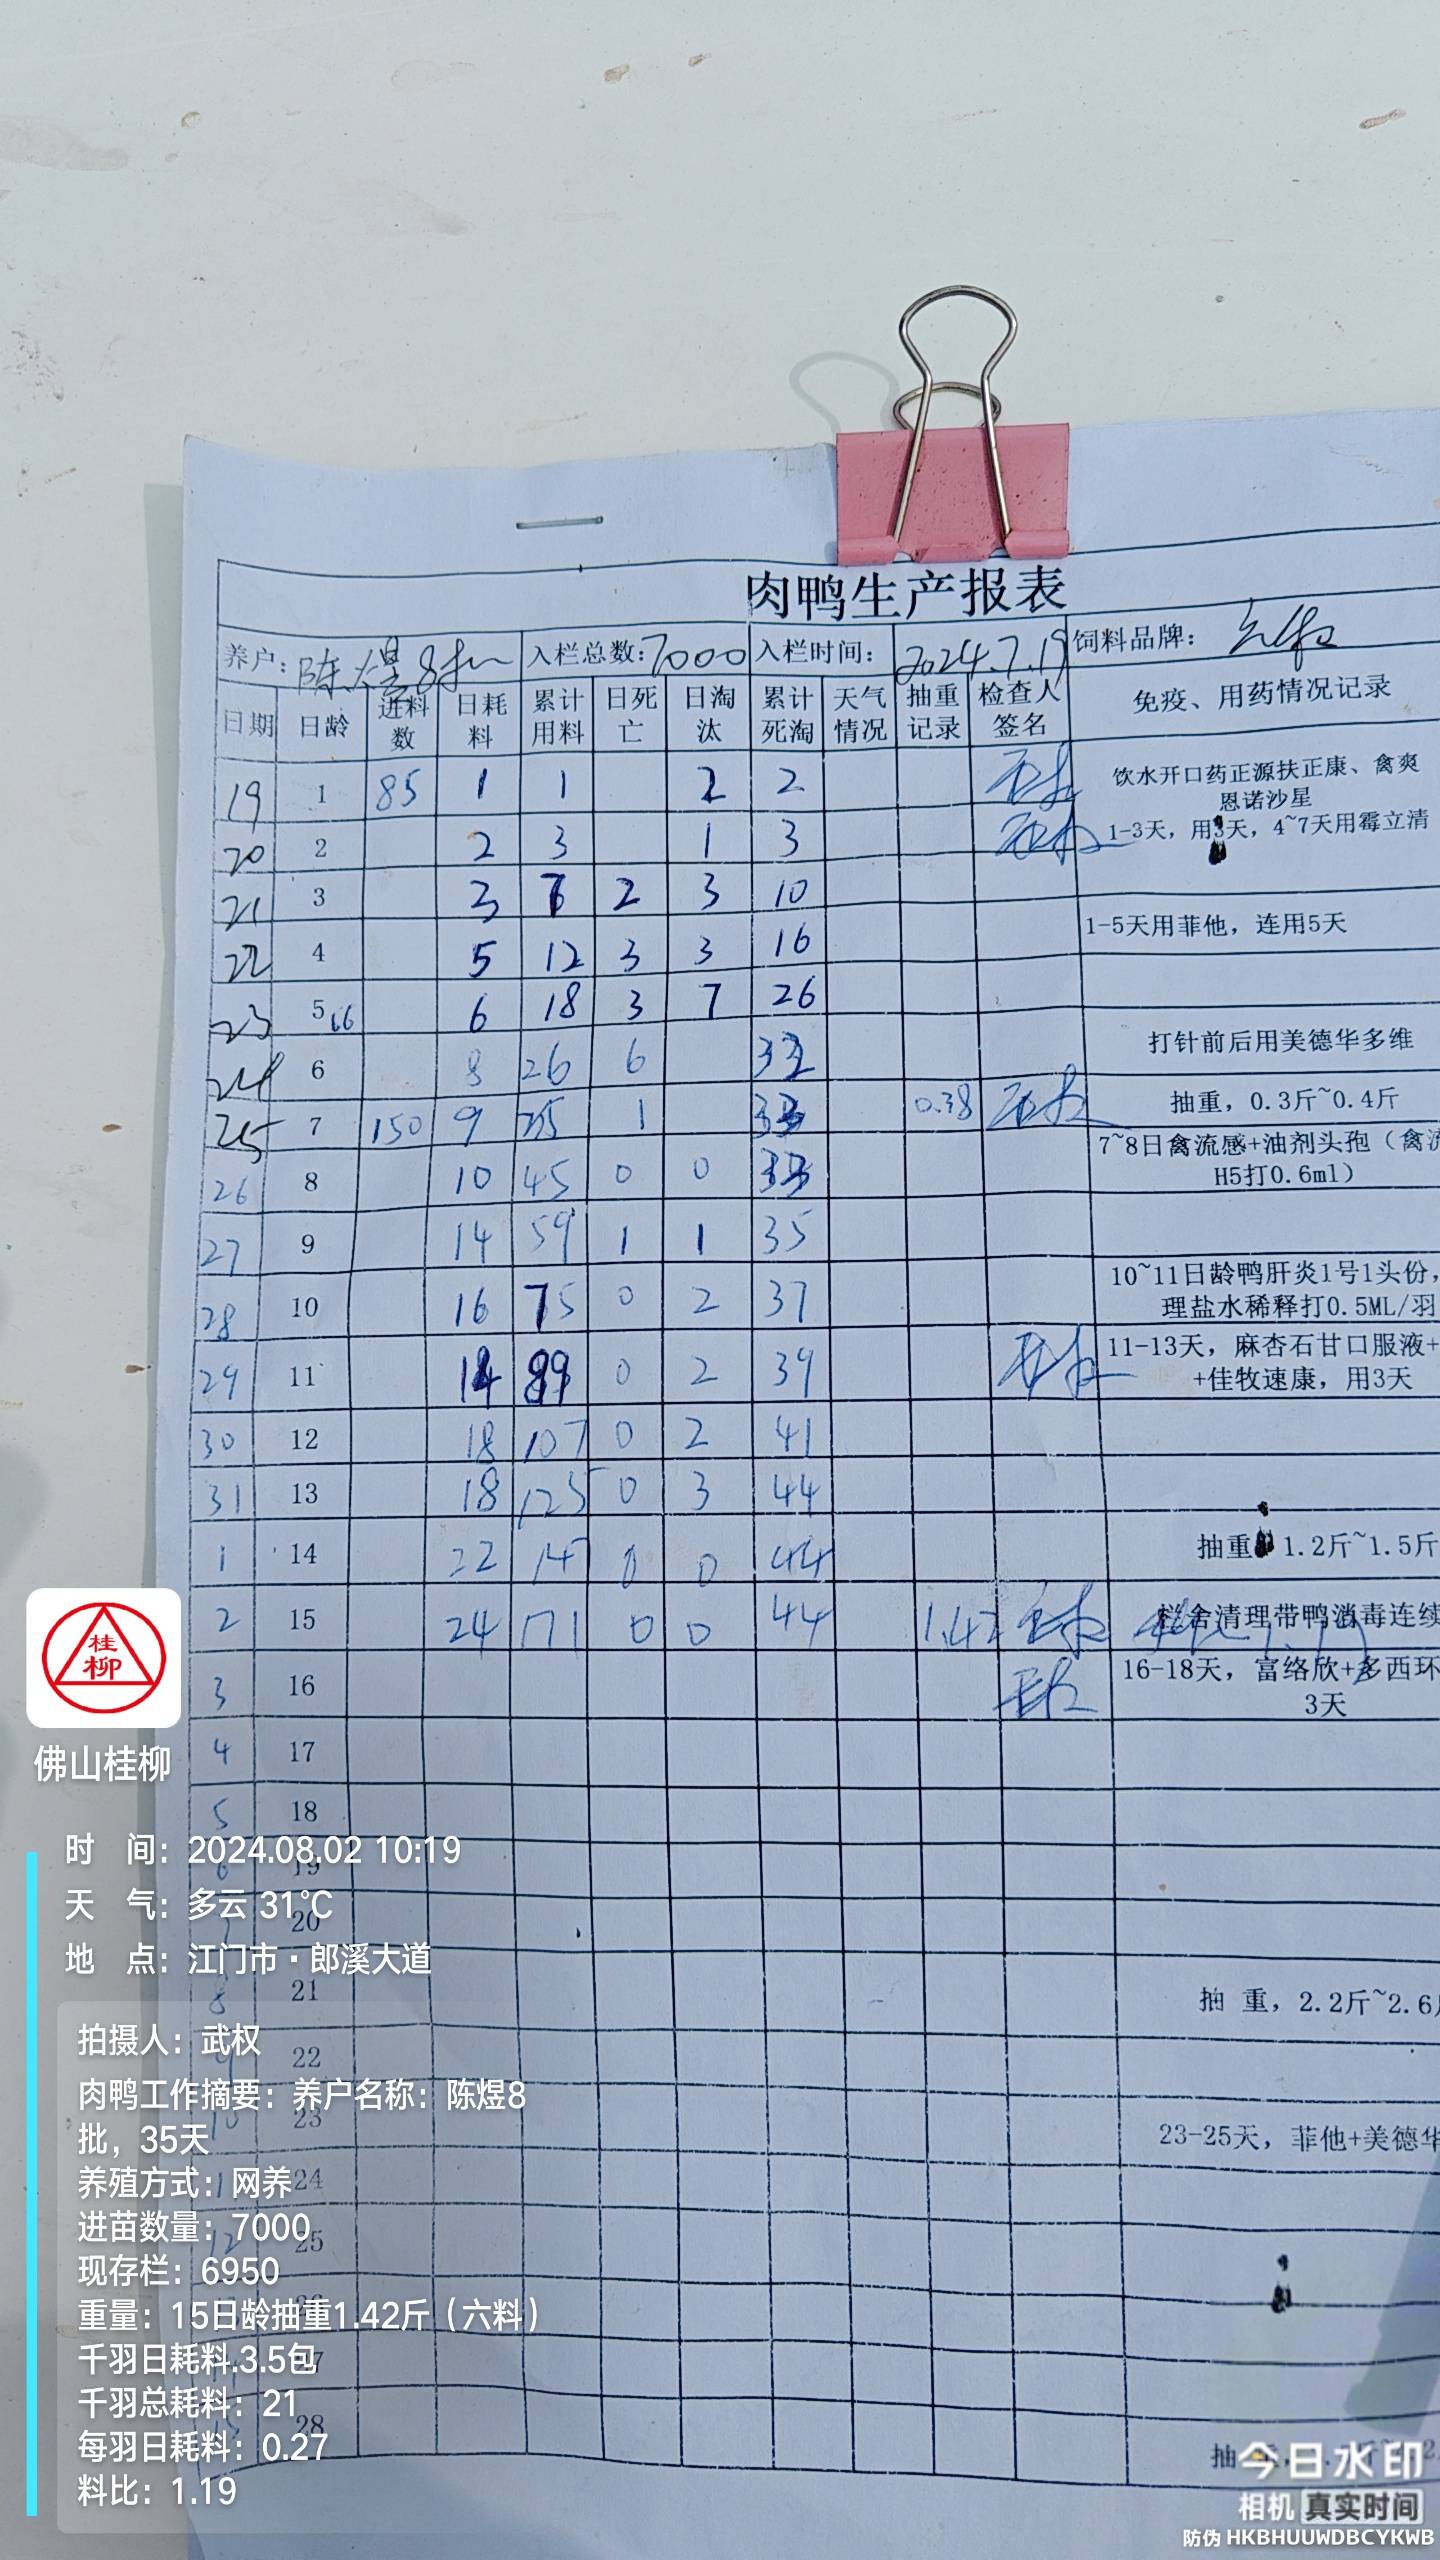 肉鸭生产报表
养户: 陈煜8批 入栏总数: 7000 入栏时间: 2024.7.19 饲料品牌:
日期 日龄 进料数 日耗料 累计用料 日死亡 日淘汰 累计死淘 天气情况 抽重记录 检查人签名 免疫、用药情况记录
19 1 85 1 1 2 2 饮水开口药正源扶正康、禽爽
恩诺沙星
20 2 2 3 1 3 1-3天，用3天，4~7天用霉立清
21 3 3 2 3 10
22 4 5 12 3 3 16 1-5天用菲他，连用5天
23 5 66 6 18 3 7 26
24 6 8 26 6 32 打针前后用美德华多维
25 7 150 9 35 1 33 0.38 抽重，0.3斤~0.4斤
26 8 10 45 0 0 33 7~8日禽流感+油剂头孢（禽流
H5打0.6ml）
27 9 14 59 1 1 35
28 10 16 75 0 2 37 10~11日龄鸭肝炎1号1头份，
理盐水稀释打0.5ML/羽
29 11 14 89 0 2 39 11-13天，麻杏石甘口服液+
+佳牧速康，用3天
30 12 18 107 0 2 41
31 13 18 125 0 3 44
1 14 22 147 0 0 44 抽重 1.2斤~1.5斤
2 15 24 171 0 0 44 1.42 栏舍清理带鸭消毒连续
3 16 16-18天，富络欣+多西环
3天
4 17
5 18
6 19
20
8 21 抽 重，2.2斤~2.6
22
23 23-25天，菲他+美德华
24
12 25
28
桂柳
佛山桂柳
时 间：2024.08.02 10:19
天 气：多云 31℃
地 点：江门市·郎溪大道
拍摄人：武权
肉鸭工作摘要：养户名称：陈煜8
批，35天
养殖方式：网养
进苗数量：7000
现存栏：6950
重量：15日龄抽重1.42斤（六料）
千羽日耗料.3.5包
千羽总耗料：21
每羽日耗料：0.27
料比：1.19
今日水印
相机 真实时间
防伪 HKBHUUWDBCYKWB